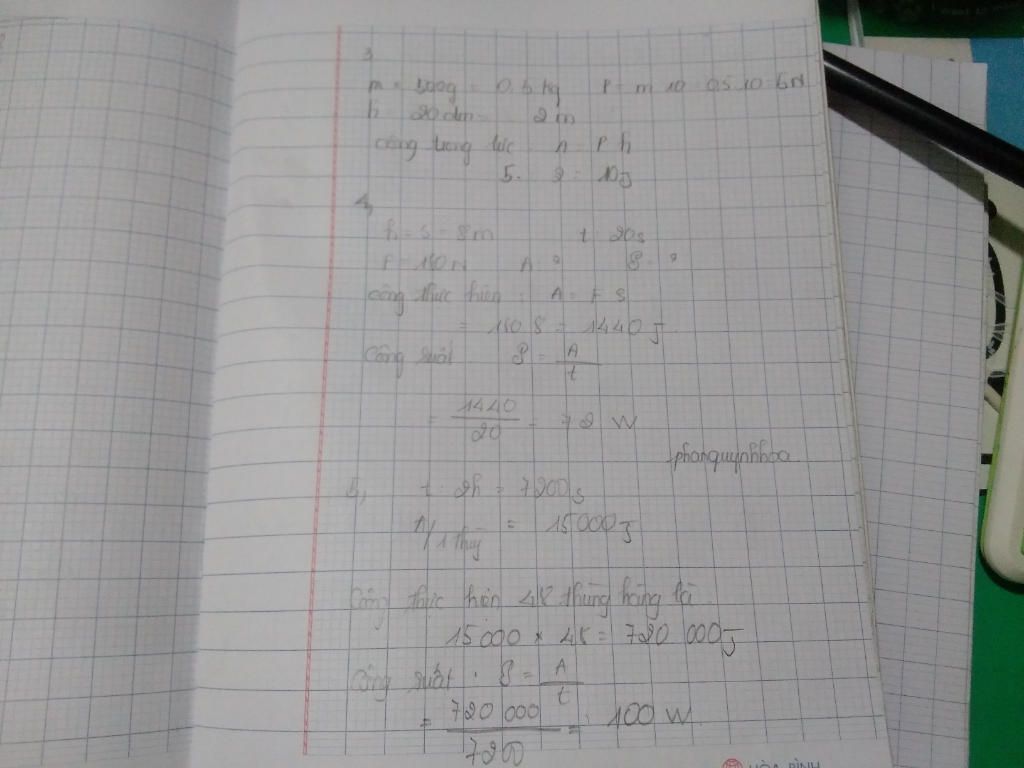 3
m = 500g = 0,5 kg P = m.10 = 0,5.10 = 5N
h = 20dm = 2m
công trọng lực : A = P.h
5. 2 = 10J
4,
h = S = 8m t = 20s
P = 180N A = ? P = ?
công thực hiện : A = F.S
= 180.8 = 1440J
Công suất P = A/t
= 1440/20 = 72 W
phanquynhhoa
5, t = 2h = 7200s
A/1 thùg = 15000J
Công thực hiện 48 thùng hàng là
15000 × 48 = 720 000J
Công suất : P = A/t
= 720 000/7200 = 100 W
HÒA BÌNH